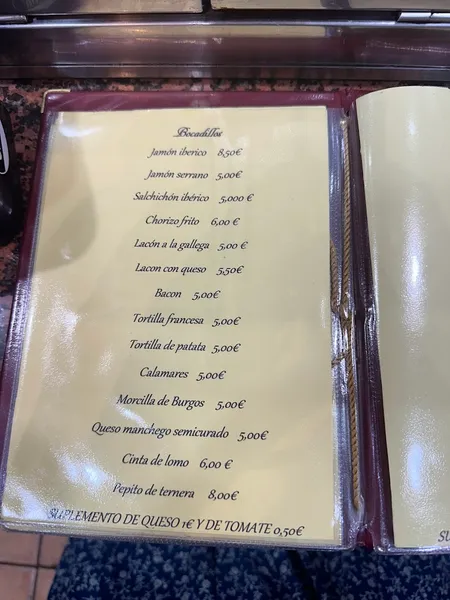 Bocadillos
Jamón iberico 8,50€
Jamón serrano 5,00€
Salchichón ibérico 5,000 €
Chorizo frito 6,00 €
Lacón a la gallega 5,00 €
Lacon con queso 5,50€
Bacon 5,00€
Tortilla francesa 5,00€
Tortilla de patata 5,00€
Calamares 5,00€
Morcilla de Burgos 5,00€
Queso manchego semicurado 5,00€
Cinta de lomo 6,00 €
Pepito de ternera 8,00€
SUPLEMENTO DE QUESO 1€ Y DE TOMATE 0,50€